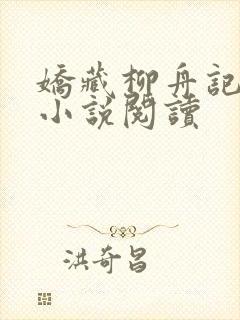 嬌藏柳舟記
小說閱讀
洪奇昌